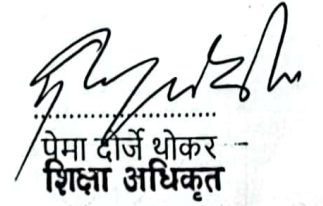 पेमा दोर्जे थोकर
शिक्षा अधिकृत